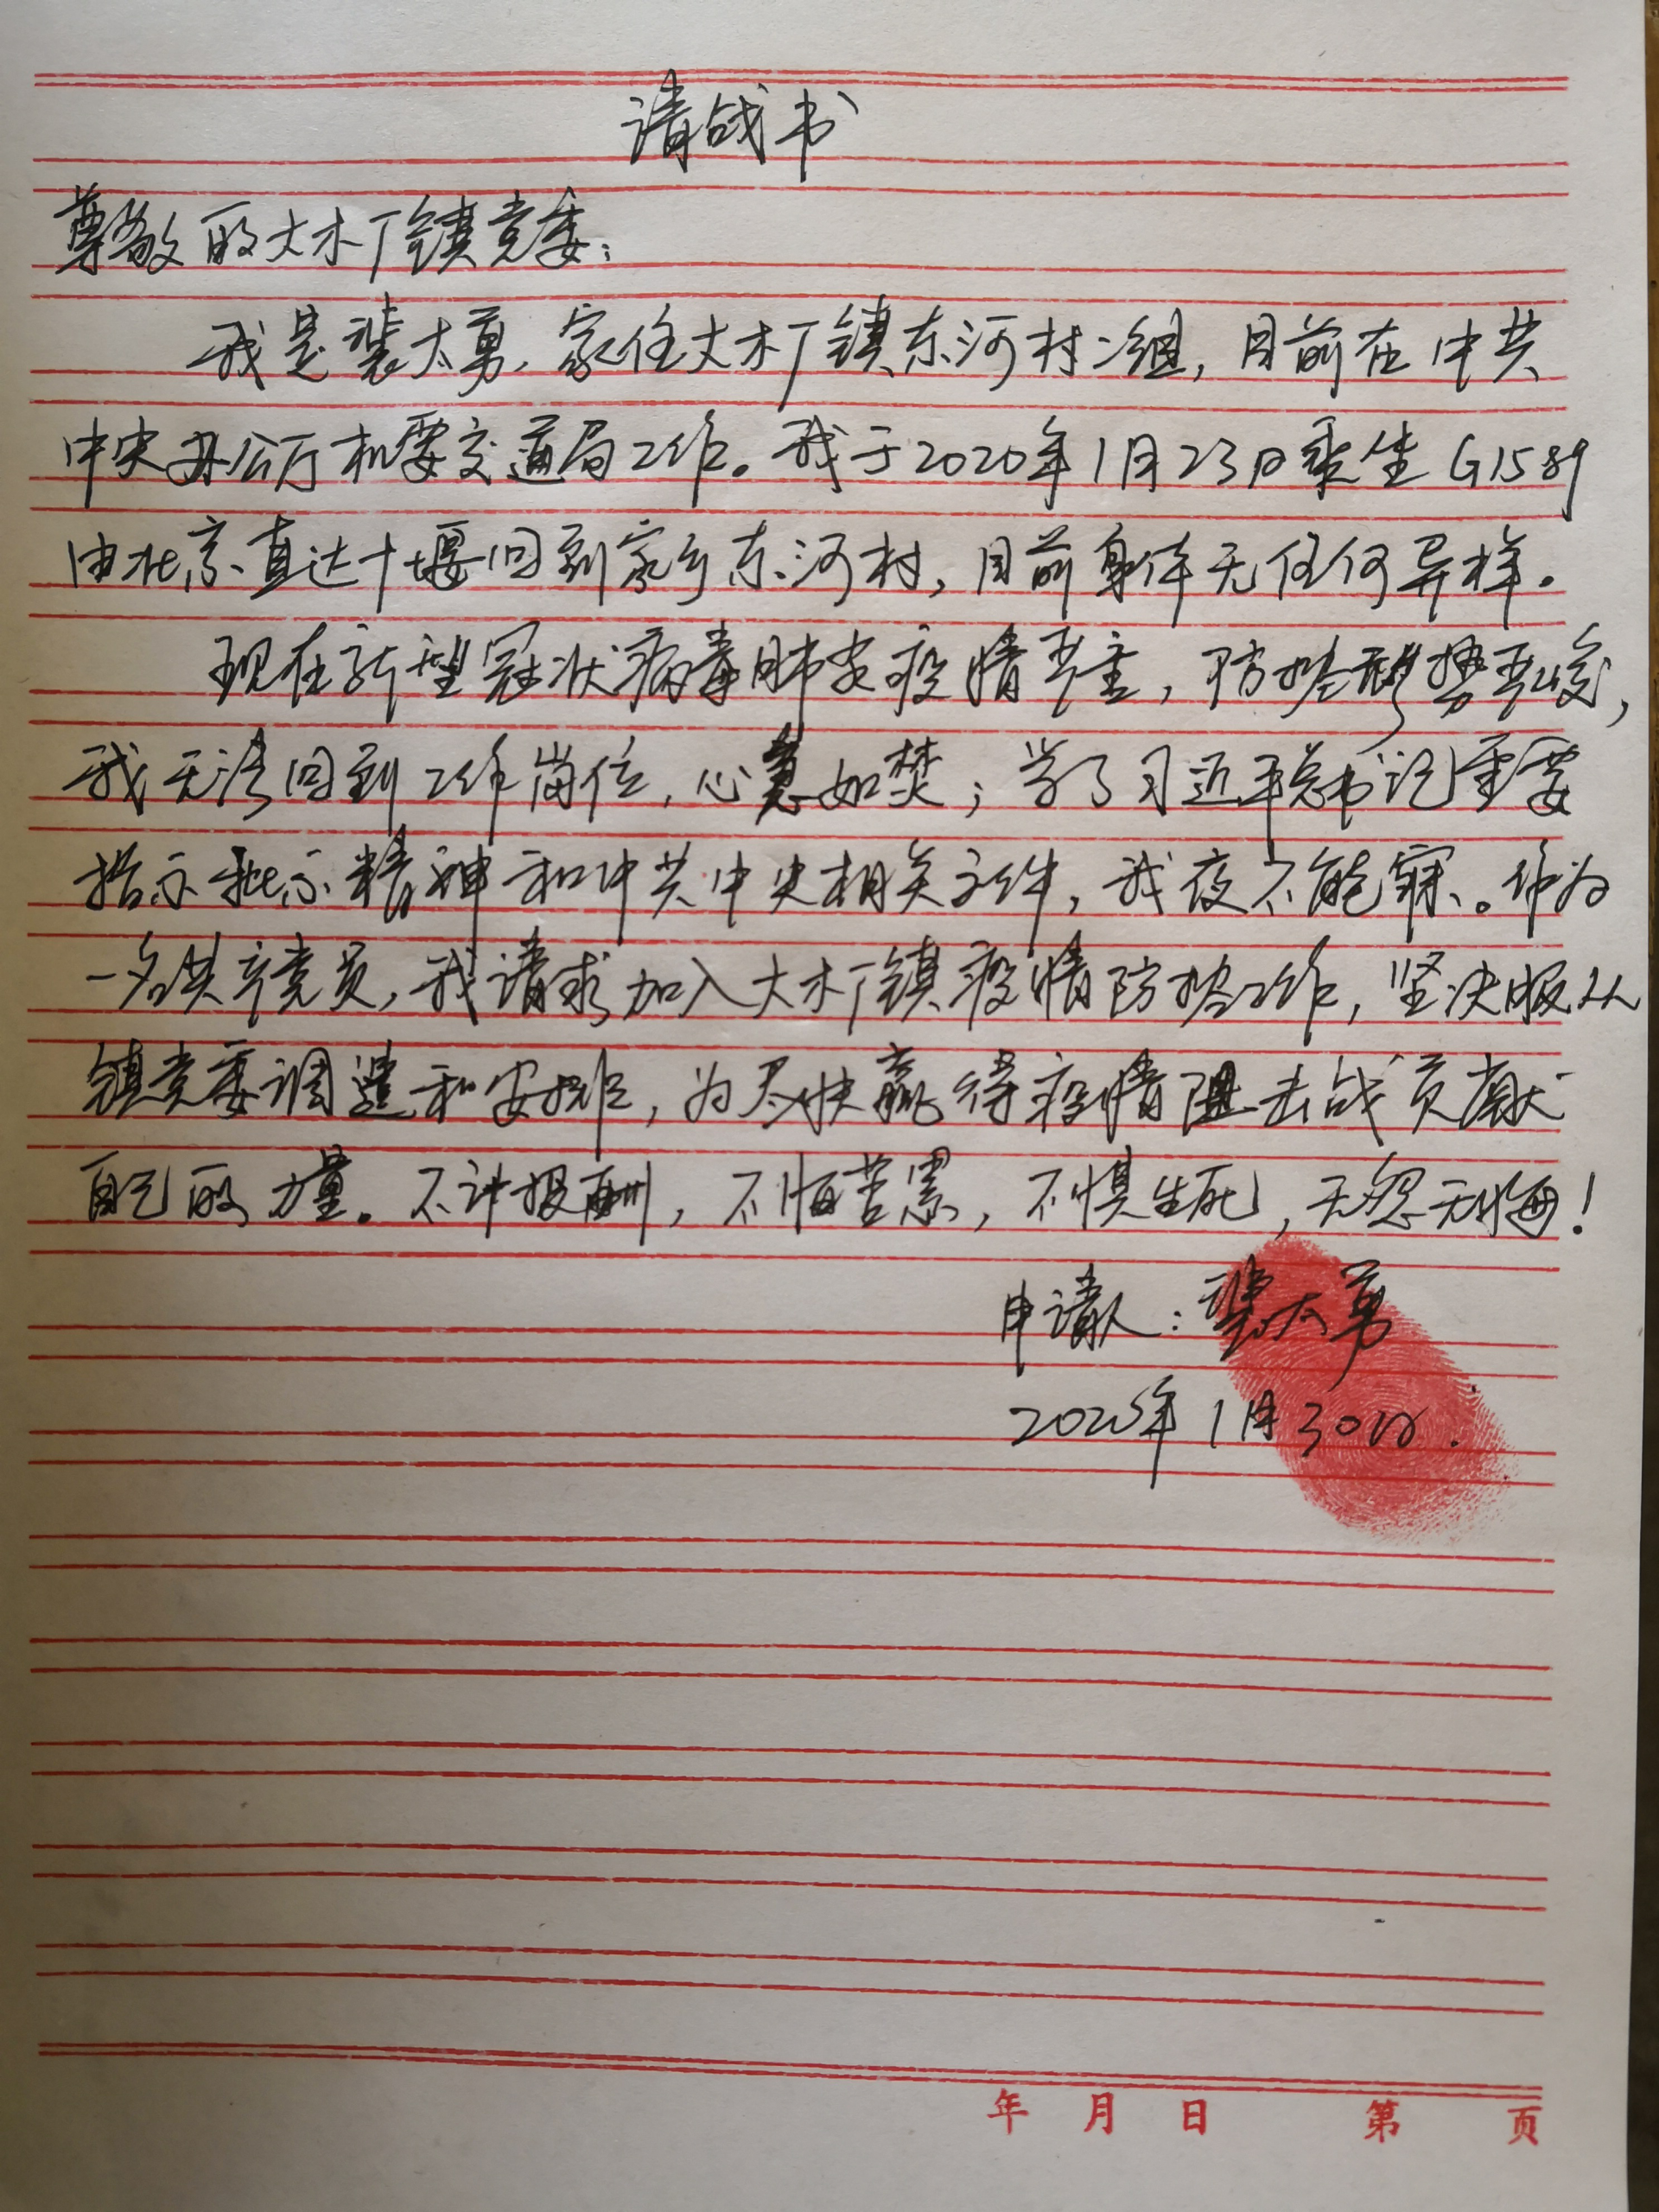 请战书
尊敬的大木厂镇党委：
我是裴大勇，家住大木厂镇东河村2组，目前在中共
中央办公厅机要交通局工作。我于2020年1月23日乘坐G1589
由北京直达十堰回到家乡东河村，目前身体无任何异样。
现在新型冠状病毒肺炎疫情严重，防控形势严峻，
我无法回到工作岗位，心急如焚；学了习近平总书记重要
指示批示精神和中共中央相关文件，我夜不能寐。作为
一名共产党员，我请求加入大木厂镇疫情防控工作，坚决服从
镇党委调遣和安排，为尽快赢得疫情阻击战贡献
自己的力量。不计报酬，不怕苦累，不惧生死，无怨无悔！
申请人：裴大勇
2020年1月30日.
年 月 日 第 页